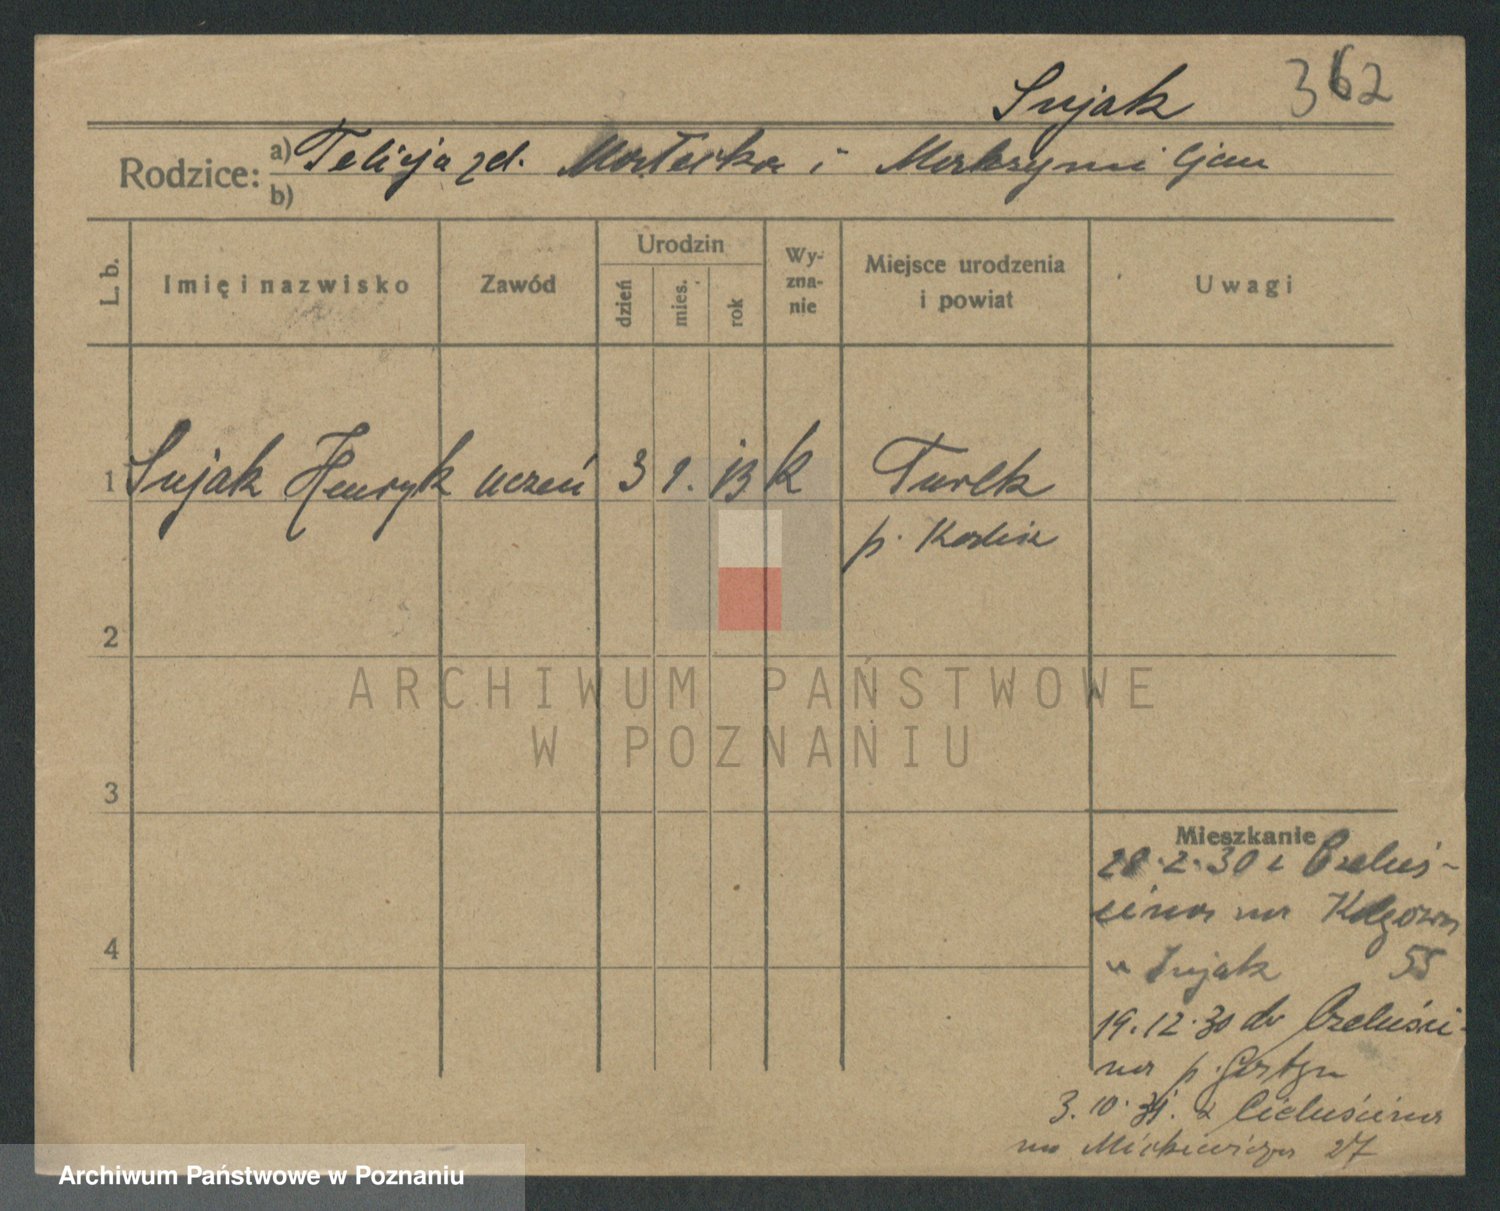 362
Sujak
Rodzice:
a) Felicja zd. Małecka i Maksymiljan
b)
L. b.
Imię i nazwisko
Zawód
Urodzin
dzień
mies.
rok
Wy-
zna-
nie
Miejsce urodzenia
i powiat
Uwagi
1 Sujak Henryk uczeń 3 1. 13 k Turek
p.
2
ARCHIWUM PAŃSTWOWE
W POZNANIU
3
4
Mieszkanie
20.2.30 z Czeluś-
cina na
u Sujak 55
19.12.30 do Czeluści-
na p. Gostyn
3.10.31. z Cieluścina
na Mickiewicza 27
Archiwum Państwowe w Poznaniu